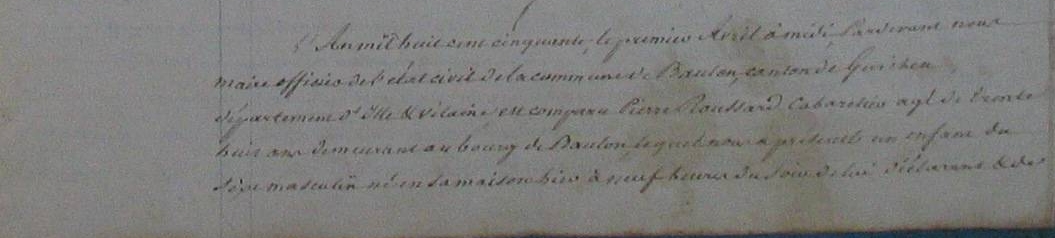 L'An mil huit cent cinquante, le premier Avril à midi, Pardevant nous
maire officier de l'état civil de la commune de Baulon, canton de Guichen
département d'Ille & Vilaine est comparu Pierre Roussard Cabaretier agé de trente
huit ans demeurant au bourg de Baulon, lequel nous a présenté un enfant du
sexe masculin né en sa maison hier à neuf heures du soir de lui déclarant & de